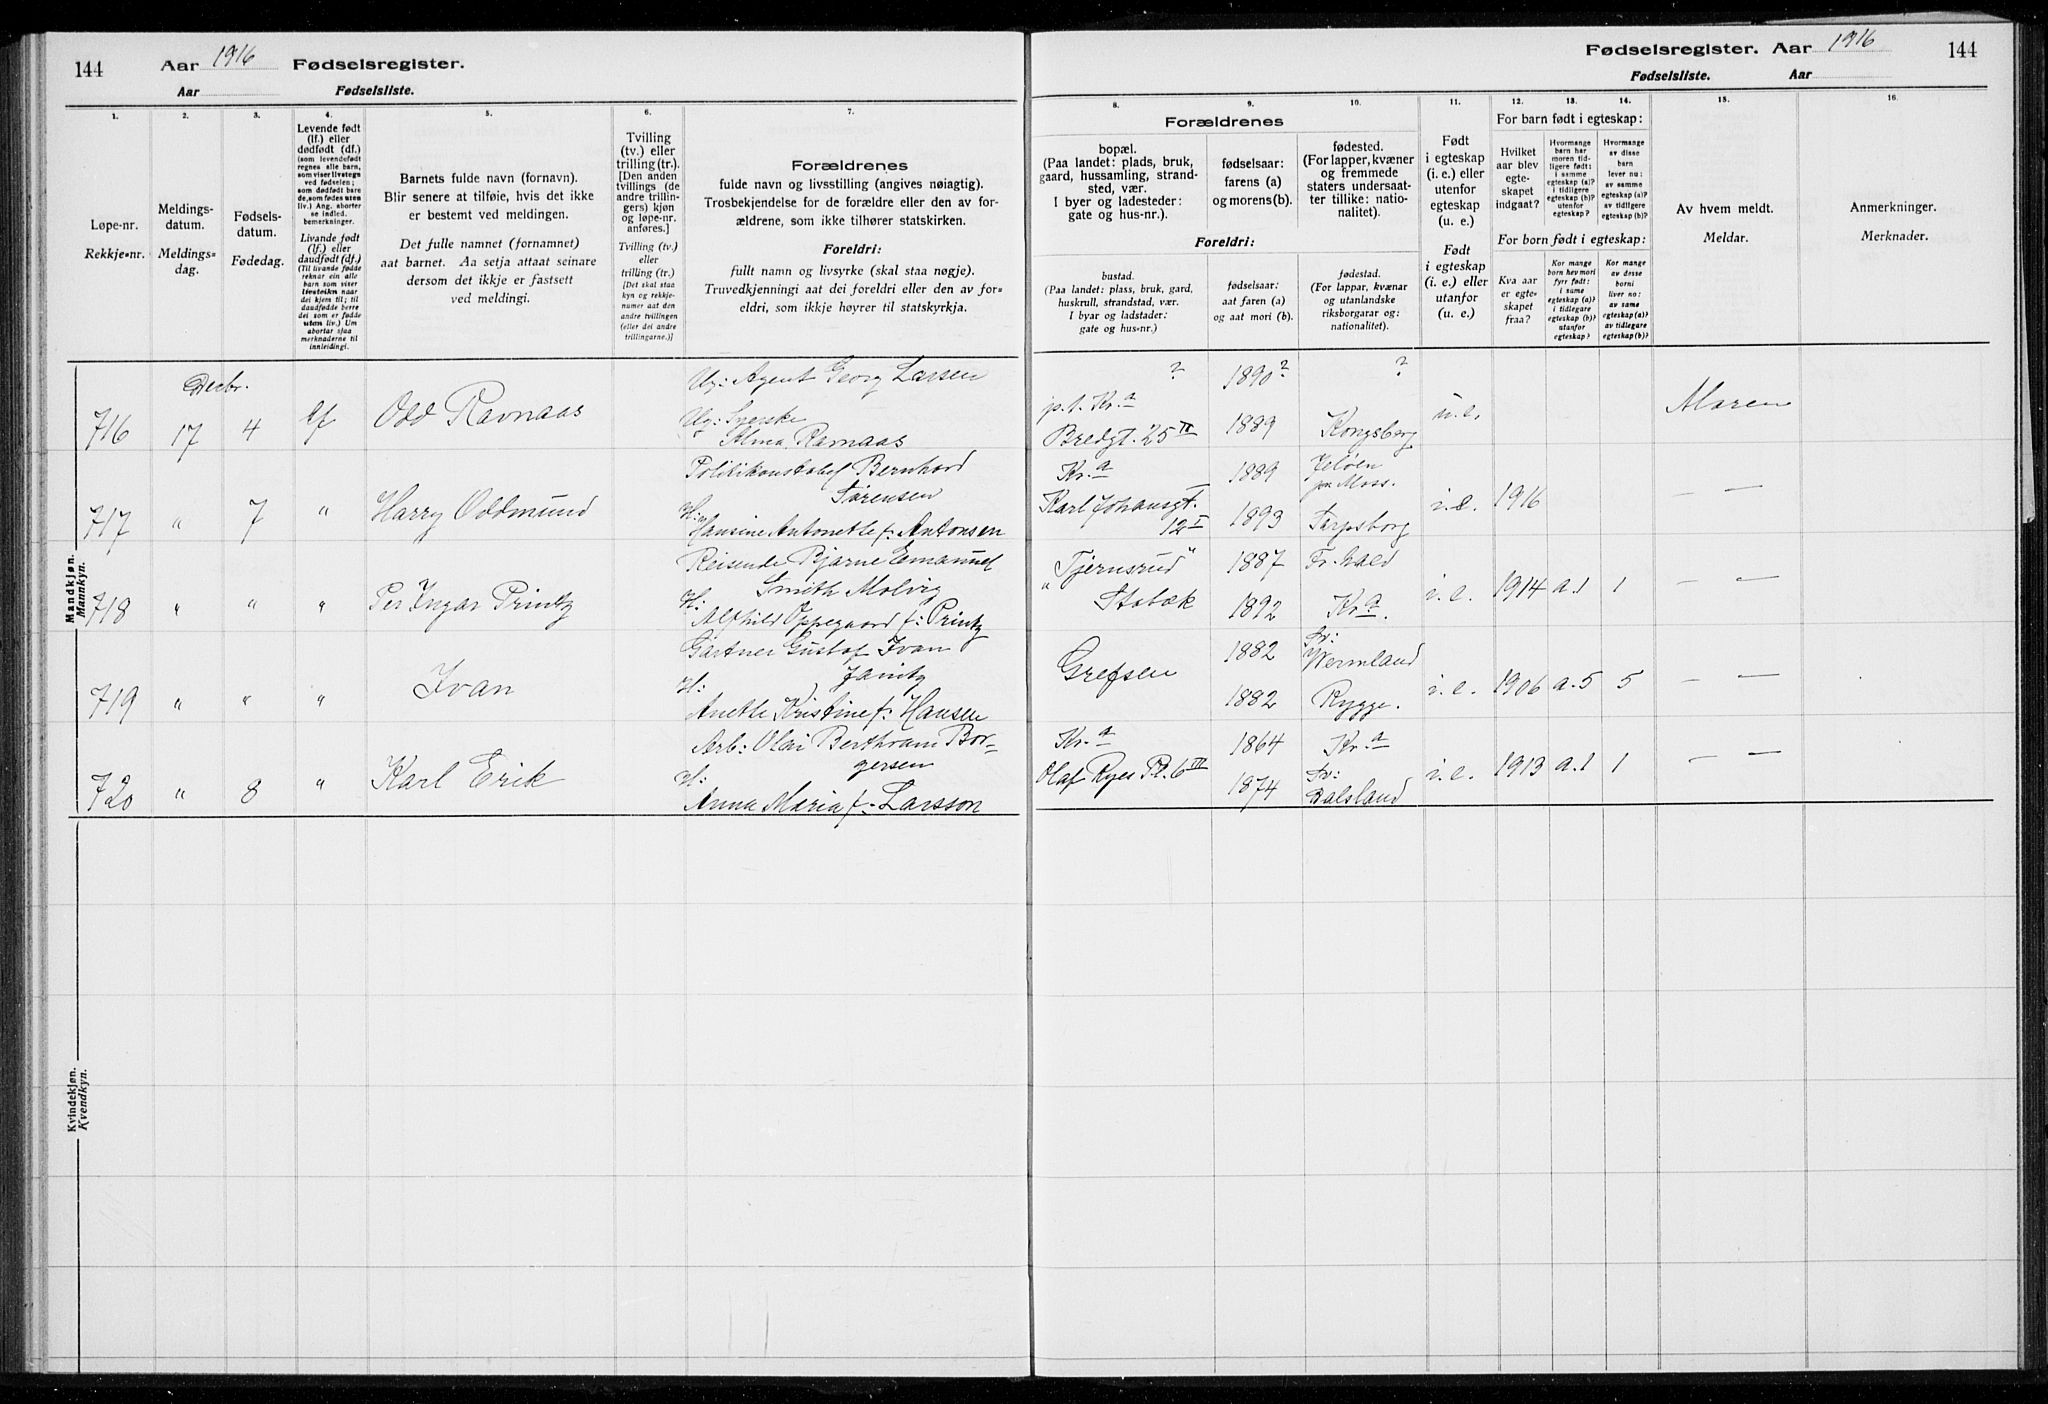 144 Aar 1916 Fødselsregister.
Aar Fødselsliste.
Fødselsregister. Aar 1916 144
Fødselsliste. Aar
1. 2. 3. 4. 5. 6. 7.
Løpe-nr.
Rekkje-nr.
Meldings-
datum.
Meldings-
dag.
Fødsels-
datum.
Fødedag.
Levende født
(lf.) eller
dødfødt (df.)
(som levendefødt
regnes alle barn,
som viser livstegn
ved fødselen;
som dødfødt bare
de, som fødes uten
liv.) Ang. aborter
se indled.
bemerkninger.
Livande født
(lf.) eller
daudfødt (df.)
(Til livande fødde
reknar ein alle
barn som viser
livsteikn naar
dei kjem til; til
daudfødde berre
dei som er fødde
uten liv.) Um
abortar sjaa
merknaderne til
innleidingi.
Barnets fulde navn (fornavn).
Blir senere at tilføie, hvis det ikke
er bestemt ved meldingen.
Det fulle namnet (fornamnet)
aat barnet. Aa setja attaat seinare
dersom det ikkje er fastsett
ved meldingi.
Tvilling
(tv.) eller
trilling (tr.).
[Den anden
tvillings (de
andre trillin-
gers) kjøn
og løpe-nr.
anføres.]
Tvilling (tv.)
eller
trilling (tr.)
[Det skal staa
kyn og rekkje-
numer aat den
andre tvillingen
(eller dei andre
trillingarne.)]
Forældrenes
fulde navn og livsstilling (angives nøiagtig).
Trosbekjendelse for de forældre eller den av for-
ældrene, som ikke tilhører statskirken.
Foreldri:
fullt namn og livsyrke (skal staa nøgje).
Truvedkjenningi aat dei foreldri eller den av for-
eldri, som ikkje høyrer til statskyrkja.
8. 9. 10. 11. 12. 13. 14. 15. 16.
Forældrenes
bopæl.
(Paa landet: plads, bruk,
gaard, hussamling, strand-
sted, vær.
I byer og ladesteder:
gate og hus-nr.).
fødselsaar:
farens (a)
og morens (b).
fødested.
(For lapper, kvæner
og fremmede
staters undersaat-
ter tillike: natio-
nalitet).
Foreldri:
bustad.
(Paa landet: plass, bruk, gard,
huskrull, strandstad, vær.
I byar og ladstader:
gate og hus-nr.)
fødselsaar:
aat faren (a)
og aat mori (b).
fødestad.
(For lappar, kvænar
og utanlandske
riksborgarar og:
nationalitet).
Født
i egteskap
(i. e.) eller
utenfor
egteskap
(u. e.)
Født
i egteskap
(i. e.) eller
utanfor
(u. e.)
For barn født i egteskap:
Hvilket
aar blev
egte-
skapet
indgaat?
Hvormange
barn har
moren tid-
ligere født:
i samme
egteskap (a)?
i tidligere
egteskap (b)?
utenfor
egteskap?
Hvormange
av disse
barn
lever nu:
av samme
egteskap (a)?
av tidligere
egteskap (b)?
For born født i egteskap:
Kva aar
er egte-
skapet
fraa?
Kor mange
born hev mori
fyrr født:
i same
egteskap (a)?
i tidlegare
egteskap (b)?
utanfor
egteskap?
Kor mange
av desse
borni
liver no:
av same
egteskap (a)?
av tidlegare
egteskap (b)?
Av hvem meldt.
Meldar.
Anmerkninger.
Merknader.
Mandkjøn.
Mannkyn.
Decbr.
716 17 4 lf Odd Ravnaas
Ug: Agent Georg Larsen
Ug: Syerske
Alma Ravnaas
? 1890? ?
p.t. Kr.a
Bredgt. 25 III 1889 Kongsberg
u.e. Moren
717 " 7 " Harry Oddmund
Politikonstabel Bernhard
Sørensen
H:
Hansine Antonette f. Antonsen
Kr.a 1889 Jeløen
pr. Moss.
Karl Johansgt.
12 I 1893 Sarpsborg
i.e. 1916 — —
718 " " " Per Ingar Printz
Reisende Bjarne Emanuel
Smith Molvig
H:
Alfhild Oppegaard f: Printz
"Tjernsrud" 1887 Fr.hald
Stabæk 1892 Kr.a.
i.e. 1914 a.1 1 — —
719 " " " Ivan
Gartner Gustaf Ivan
Janitz
H:
Anette Kristine f: Hansen
Grefsen 1882 Sv:
Wermland
1882 Rygge.
i.e. 1906 a.5 5 — —
720 " 8 " Karl Erik
Arb: Olai Berthram Bor-
gersen
H:
Anna Maria f. Larsson
Kr.a 1864 Kr.a
Olaf Ryes Pl. 6 III 1874 Sv:
Dalsland
i.e. 1913 a.1 1 — —
Kvindekjøn.
Kvendkyn.